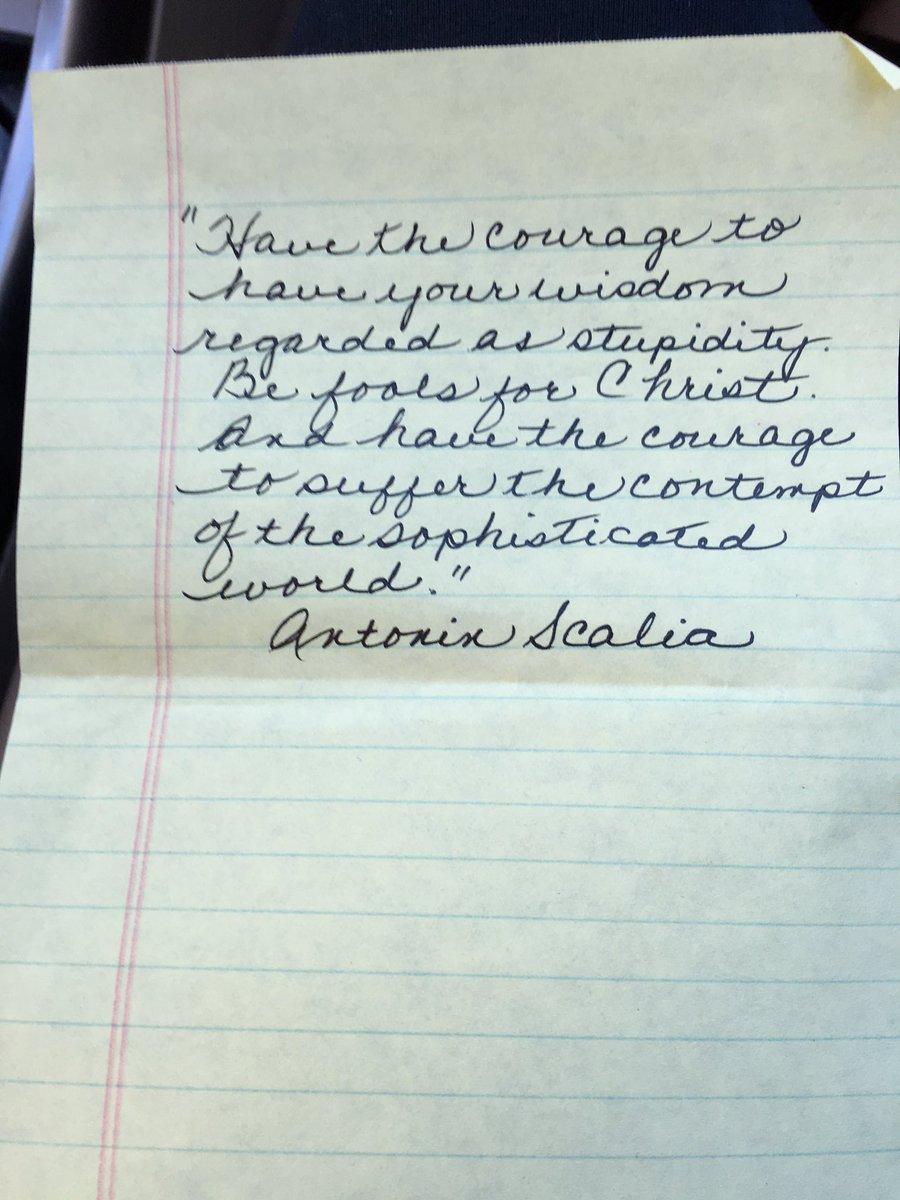 "Have the courage to
have your wisdom
regarded as stupidity.
Be fools for Christ.
And have the courage
to suffer the contempt
of the sophisticated
world."
Antonin Scalia